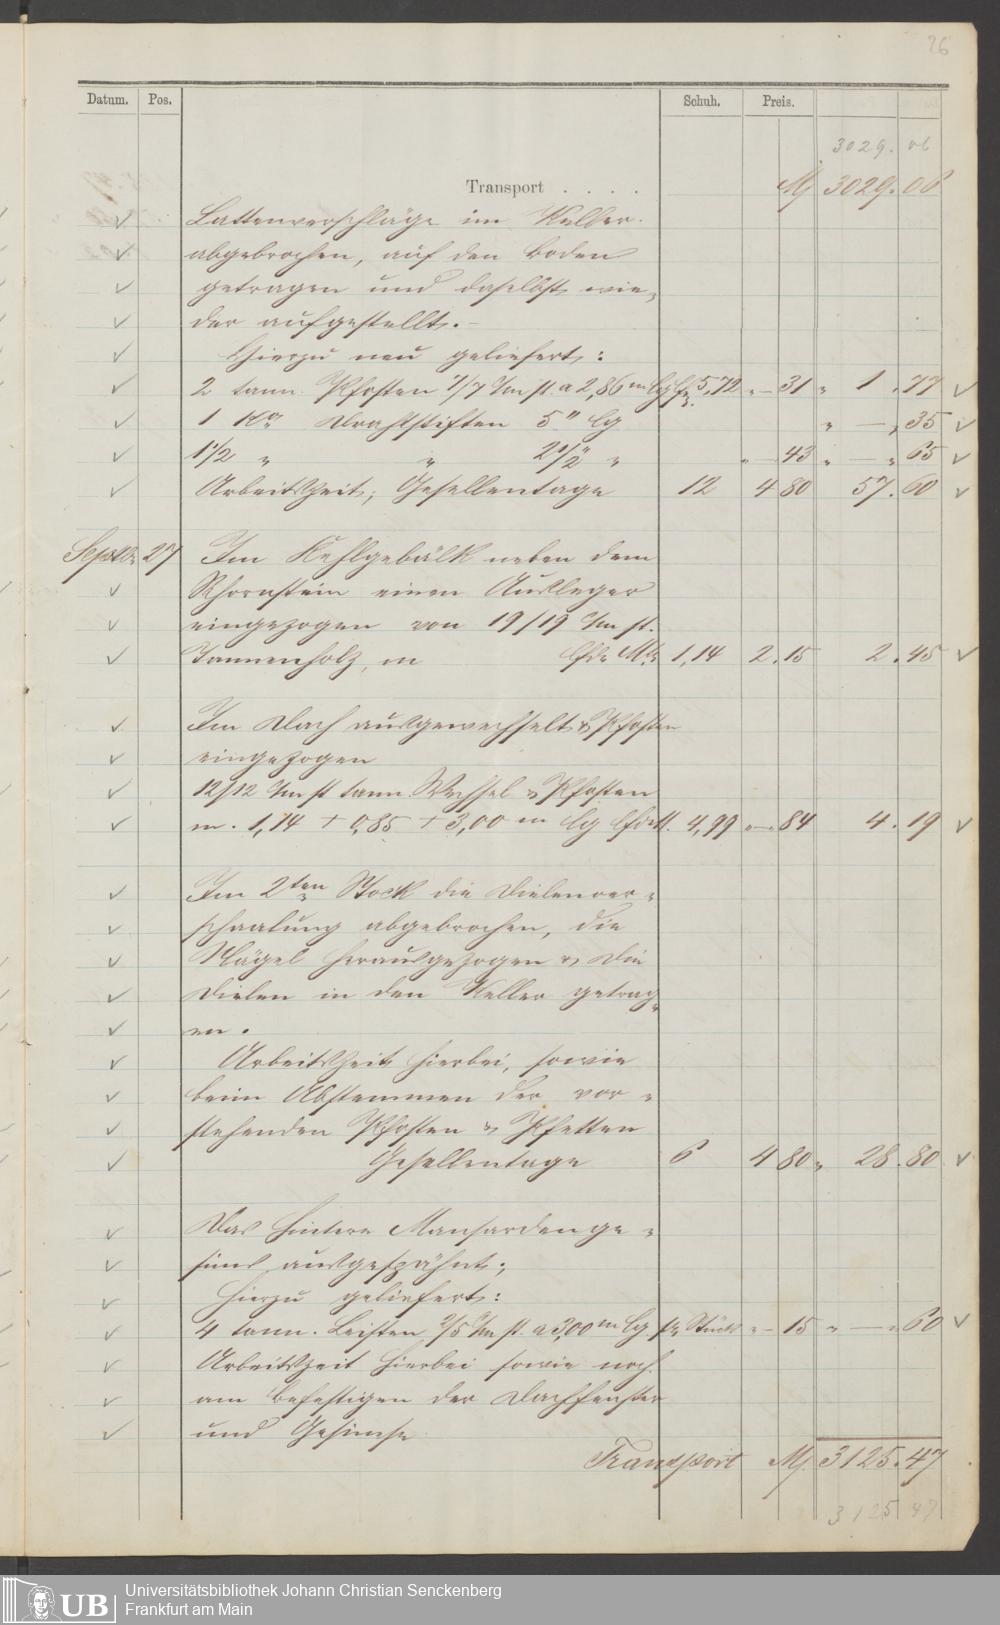 26
Datum. Pos. Schuh. Preis.
3029. 06
Transport . . . . M 3029. 06
Lattenverschläge im Keller
abgebrochen, auf den Boden
getragen und daselbst wie„
der aufgestellt. –
Hierzu neu geliefert:
2 tann. Pfosten 7/7 c/m st. a 2,86 m lg lfr. 5,72 „ – 31 „ 1 . 77
1 Ko Drahtstiften 5" lg „ – , 35
1 1/2 „ „ 2 1/2" „ „ – 43 „ – „ 65
Arbeitszeit; Gesellentage 12 4 80 57. 60
Septbr 27 Im Kehlgebälk neben dem
Schornstein einen Ausleger
eingezogen von 19/19 c/m st.
Tannenholz, m lfde Mtr 1,14 2. 15 2 . 45
Im Dach ausgewechselt & Pfosten
eingezogen
12/12 c/m st tann. Wechsel & Pfosten
m. 1,14 + 0,85 + 3,00 m lg lfde M. 4,99 „ – 84 4 . 19
Im 2ten Stock die Dielenver„
schaalung abgebrochen, die
Nägel herausgezogen & die
Dielen in den Keller getrag„
en.
Arbeitszeit hierbei, sowie
beim Abstemmen der vor„
stehenden Pfosten & Pfetten
Gesellentage 6 4 80 „ 28. 80
Das hintere Mansardenge„
sims ausgespähnt;
hierzu geliefert:
4 tann. Leisten 2/5 c/m st. a 3,00 m lg pr Stück „ – 15 „ – „ 60
Arbeitszeit hierbei sowie noch
am befestigen der Dachfenster
und Gesimse
Transport M 3125. 47
3125 47
Universitätsbibliothek Johann Christian Senckenberg
Frankfurt am Main
UB